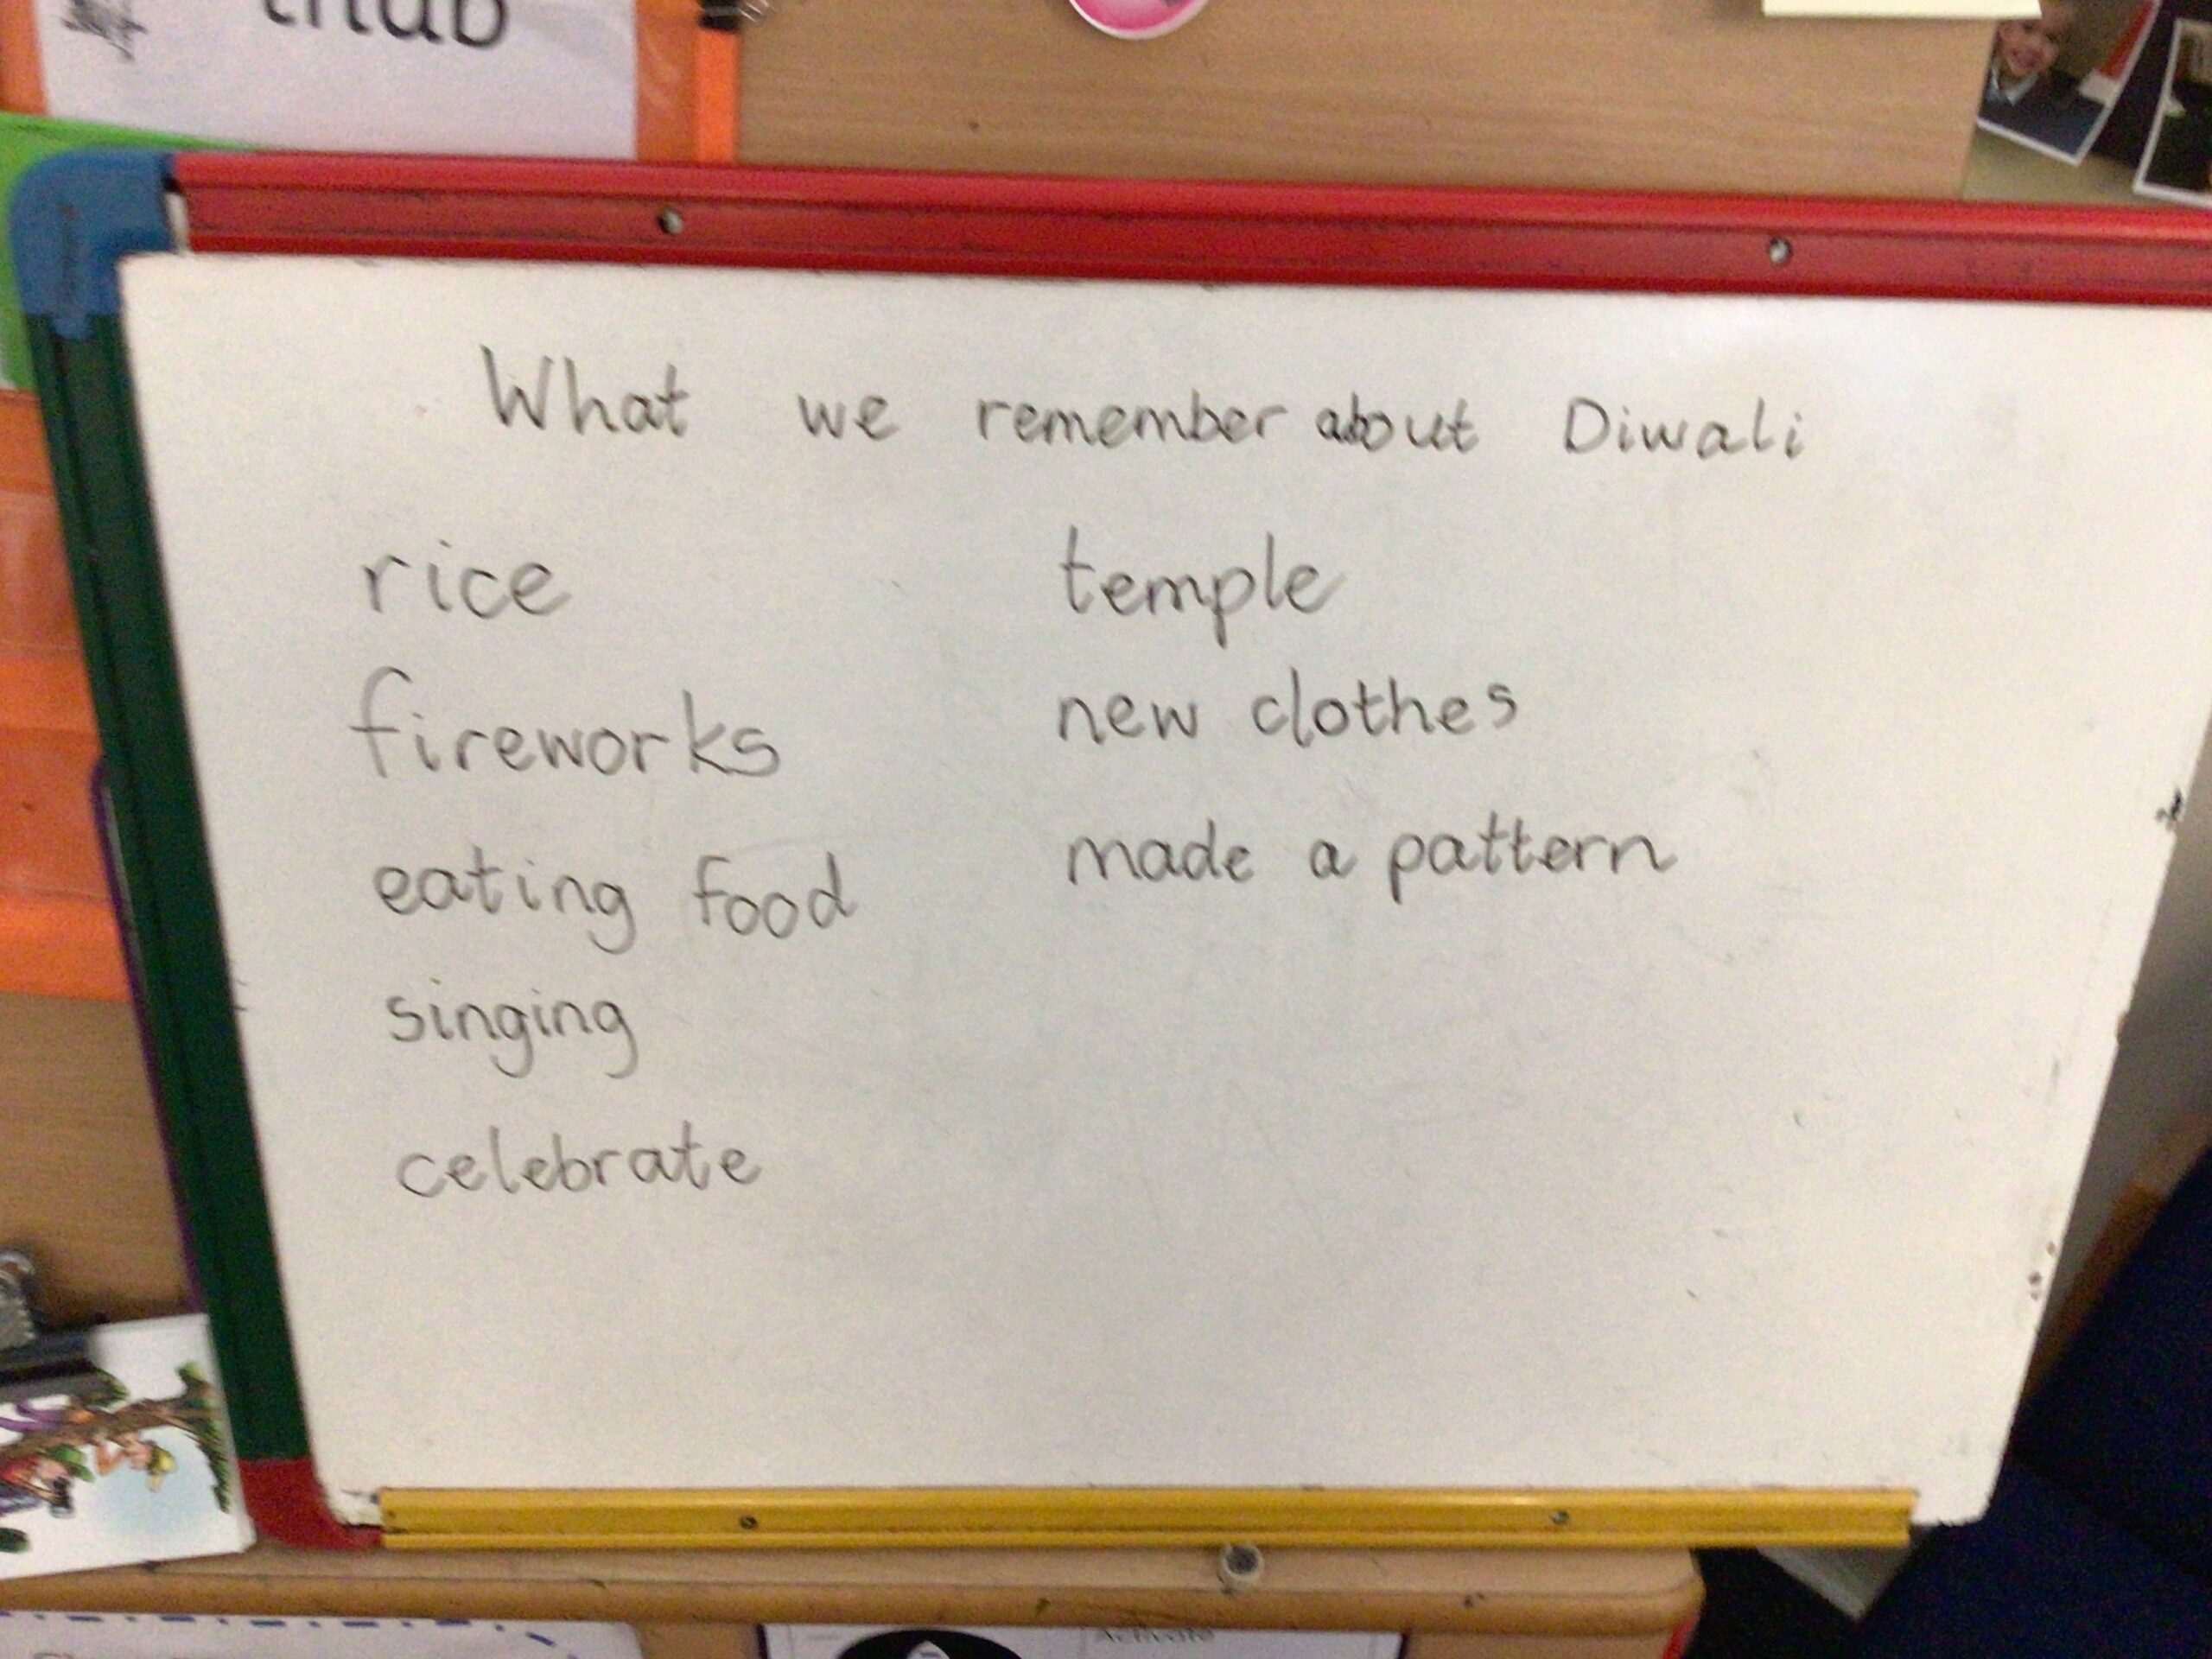 What we remember about Diwali
rice
fireworks
eating food
singing
celebrate
temple
new clothes
made a pattern
Activate